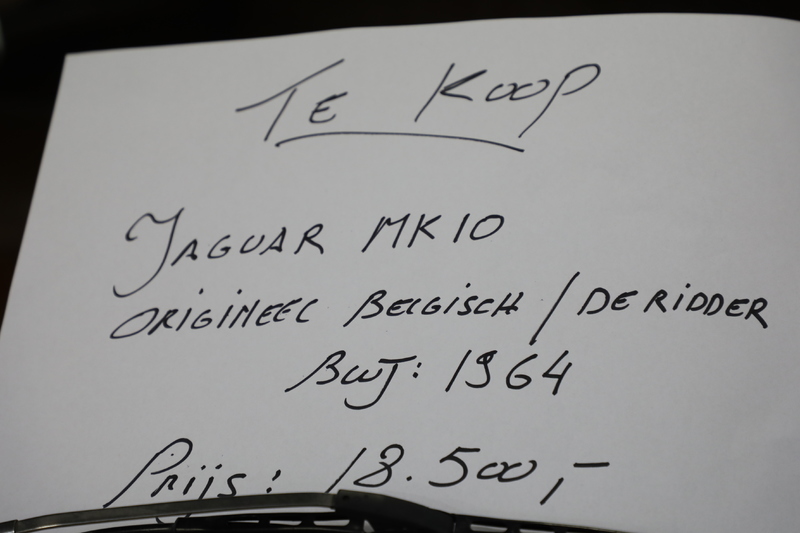 TE KOOP
JAGUAR MK10
ORIGINEEL BELGISCH / DE RIDDER
BWJ: 1964
Prijs: 18.500,-